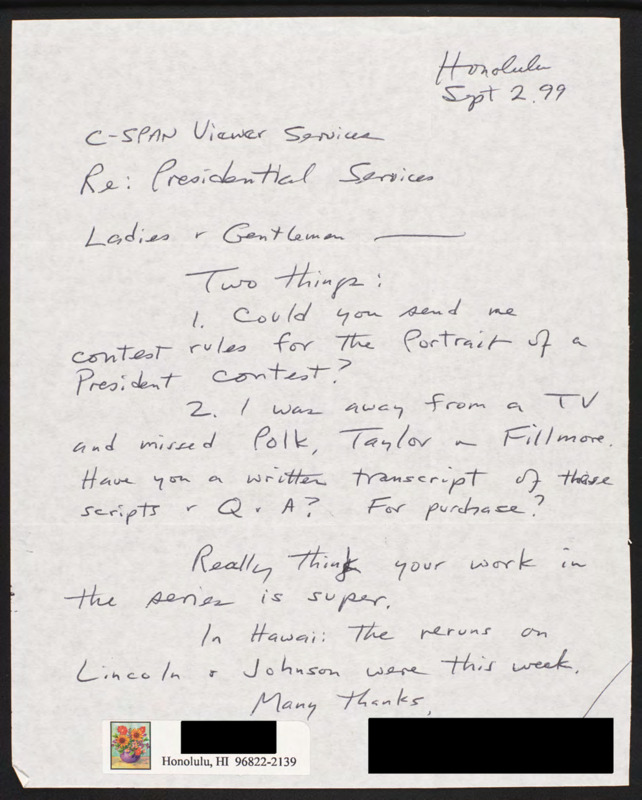 Honolulu
Sept 2.99
C-SPAN Viewer Services
Re: Presidential Services
Ladies + Gentlemen —
Two things:
1. Could you send me
contest rules for the Portrait of a
President contest?
2. I was away from a TV
and missed Polk, Taylor + Fillmore.
Have you a written transcript of those
scripts + Q + A? For purchase?
Really think your work in
the series is super.
In Hawaii: The reruns on
Lincoln + Johnson were this week.
Many thanks,
Honolulu, HI 96822-2139